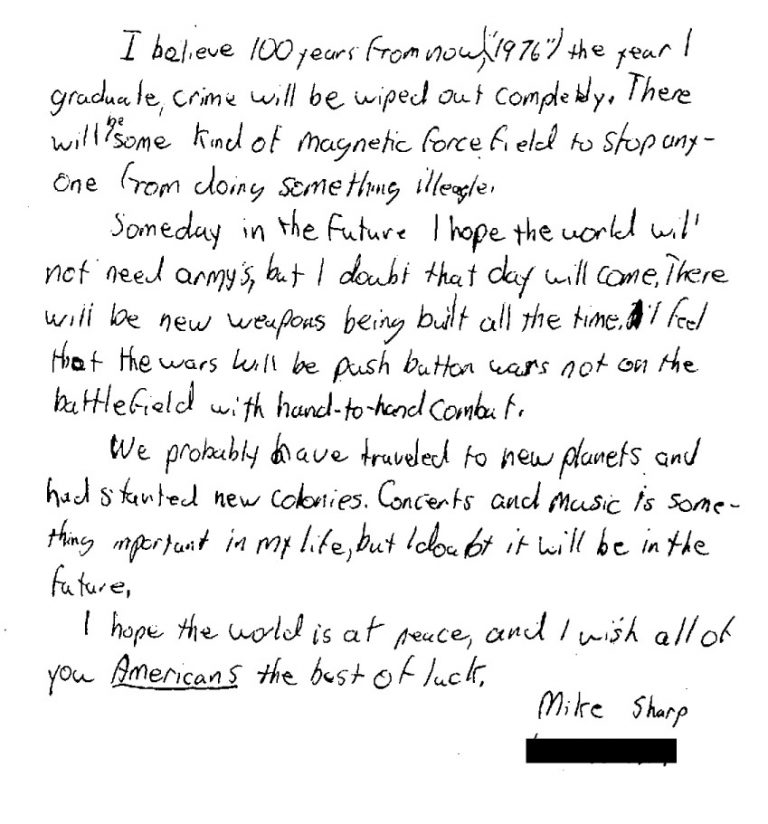 I believe 100 years from now, ("1976") the year I
graduate, crime will be wiped out completly. There
will be some kind of magnetic force field to stop any-
one from doing something illeagle.
Someday in the future I hope the world will
not need army's, but I doubt that day will come. There
will be new weapons being built all the time. I feel
that the wars will be push button wars not on the
battlefield with hand-to-hand combat.
We probably have traveled to new planets and
had started new colonies. Concerts and music is some-
thing important in my life, but I doubt it will be in the
future.
I hope the world is at peace, and I wish all of
you Americans the best of luck.
Mike Sharp